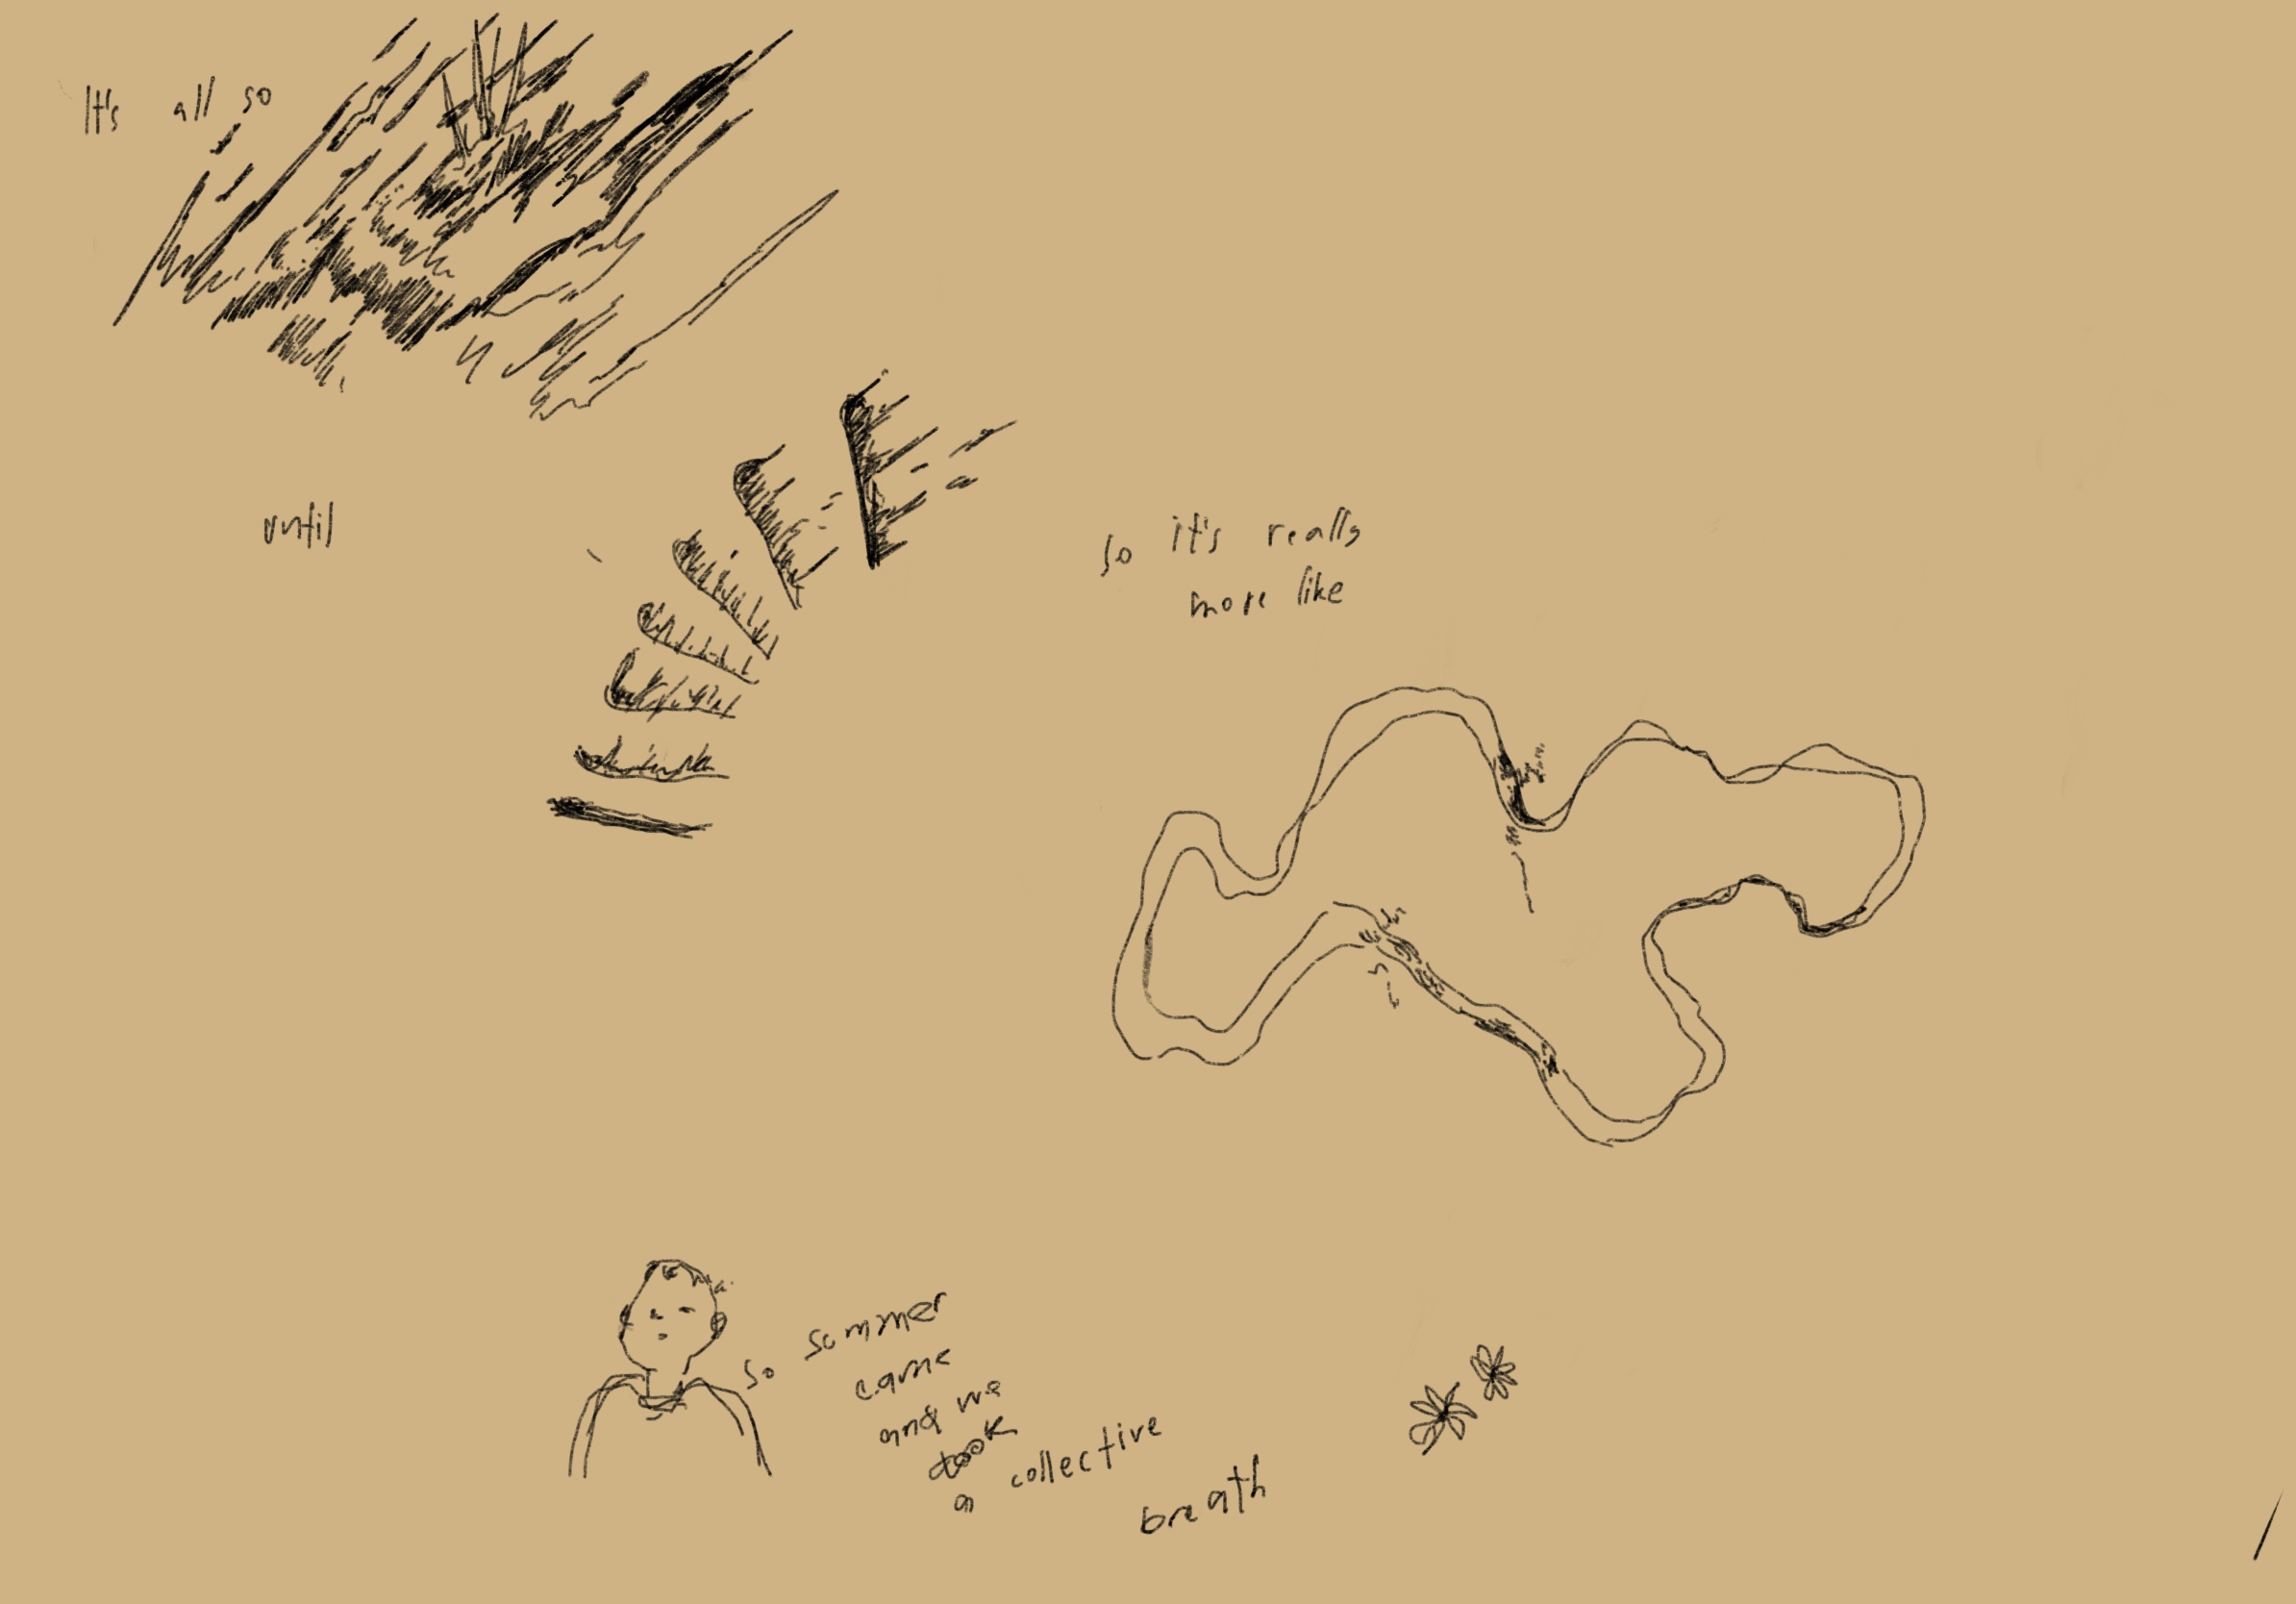 It's all so
until
so it's really
more like
so summer
came
and we
took
a collective
breath